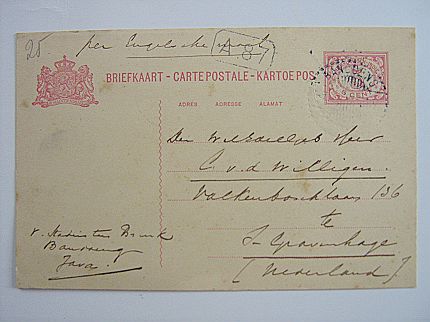 25
per Engelsche mail
A 8
BRIEFKAART - CARTE POSTALE - KARTOE POS
ADRES ADRESSE ALAMAT
5 CENT
Den Weledelgeb Heer
C. v. d. Willigen
Valkenboschlaan 136
te
s-Gravenhage
(Nederland)
Bandoeng
Java